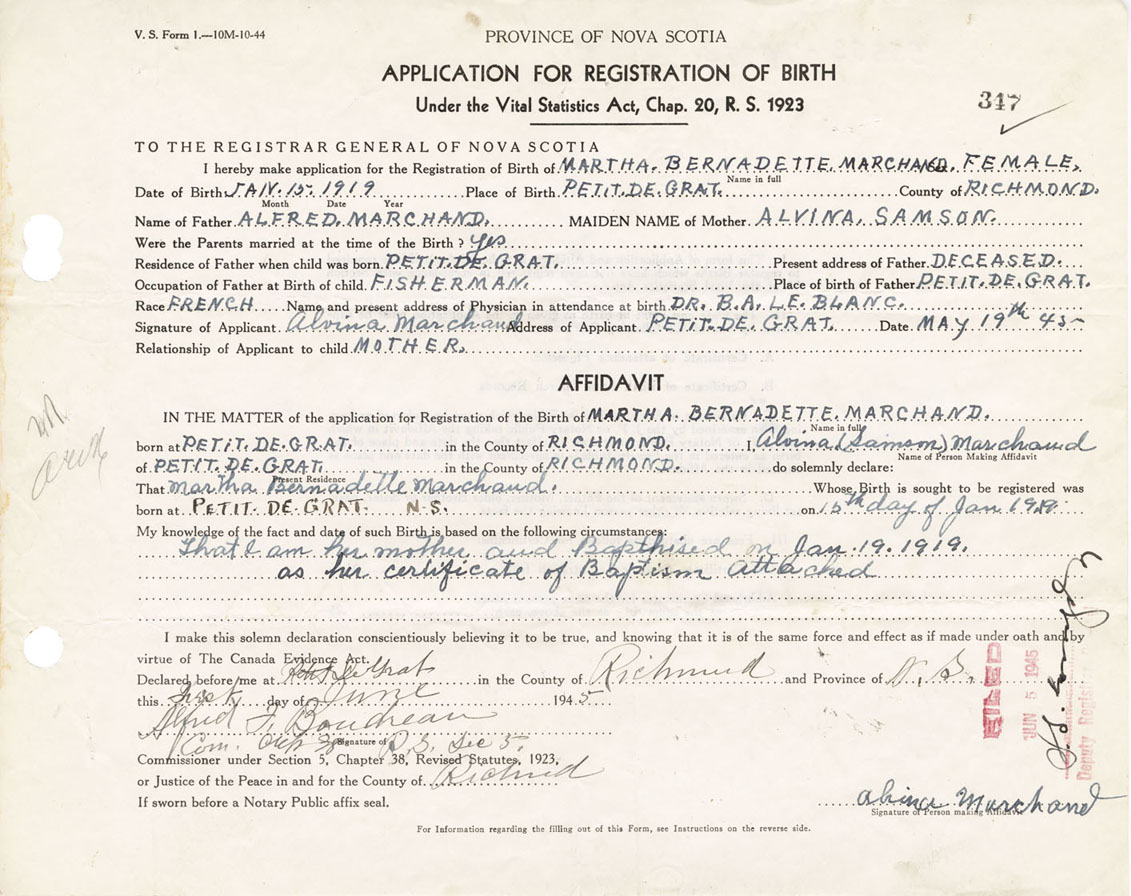 V. S. Form 1.—10M-10-44
PROVINCE OF NOVA SCOTIA
APPLICATION FOR REGISTRATION OF BIRTH
Under the Vital Statistics Act, Chap. 20, R. S. 1923
347
TO THE REGISTRAR GENERAL OF NOVA SCOTIA
I hereby make application for the Registration of Birth of MARTHA. BERNADETTE. MARCHAND. FEMALE.
Name in full
Date of Birth JAN. 15. 1919 Place of Birth PETIT. DE. GRAT. County of RICHMOND.
Month Date Year
Name of Father ALFRED. MARCHAND. MAIDEN NAME of Mother ALVINA. SAMSON.
Were the Parents married at the time of the Birth? Yes
Residence of Father when child was born PETIT. DE. GRAT. Present address of Father DECEASED.
Occupation of Father at Birth of child FISHERMAN. Place of birth of Father PETIT. DE. GRAT.
Race FRENCH Name and present address of Physician in attendance at birth DR. B. A. LE. BLANC.
Signature of Applicant Alvina Marchand Address of Applicant PETIT. DE GRAT. Date MAY 19th 45
Relationship of Applicant to child MOTHER.
AFFIDAVIT
IN THE MATTER of the application for Registration of the Birth of MARTHA. BERNADETTE. MARCHAND.
Name in full
born at PETIT. DE. GRAT. in the County of RICHMOND. I, Alvina (Samson) Marchand
Name of Person Making Affidavit
of PETIT. DE. GRAT. in the County of RICHMOND. do solemnly declare:
Present Residence
That Martha Bernadette Marchand. Whose Birth is sought to be registered was
born at PETIT. DE GRAT. N. S. on 15th day of Jan 1919.
My knowledge of the fact and date of such Birth is based on the following circumstances:
That I am her mother and Bapthised on Jan. 19. 1919.
as her certificate of Baptism attached
I make this solemn declaration conscientiously believing it to be true, and knowing that it is of the same force and effect as if made under oath and by
virtue of The Canada Evidence Act.
Declared before me at Petit de Grat in the County of Richmond and Province of N. S.
this first day of June 1945
Alfred F. Boudreau
Com. Chap 38 R. S. Sec 5.
Signature of
Commissioner under Section 5, Chapter 38, Revised Statutes, 1923,
or Justice of the Peace in and for the County of Richmond
If sworn before a Notary Public affix seal.
FILED
JUN 5 1945
Deputy Registrar
Alvina Marchand
Signature of Person making Affidavit
For Information regarding the filling out of this Form, see Instructions on the reverse side.